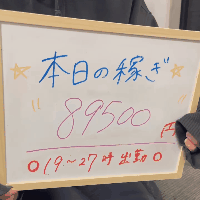 ☆本日の稼ぎ☆
"89500
円
○19〜27時出勤○